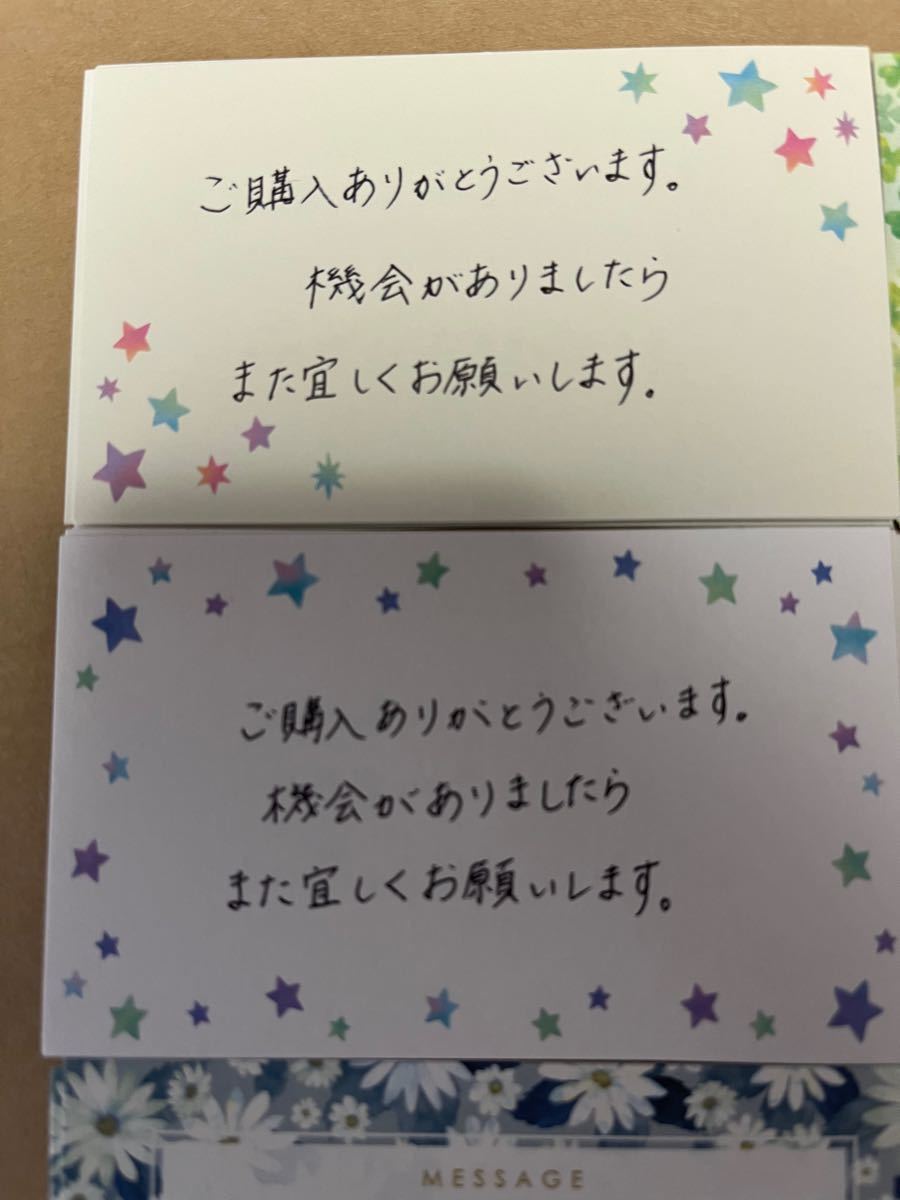 ご購入ありがとうございます。
機会がありましたら
また宜しくお願いします。
ご購入ありがとうございます。
機会がありましたら
また宜しくお願いします。
MESSAGE